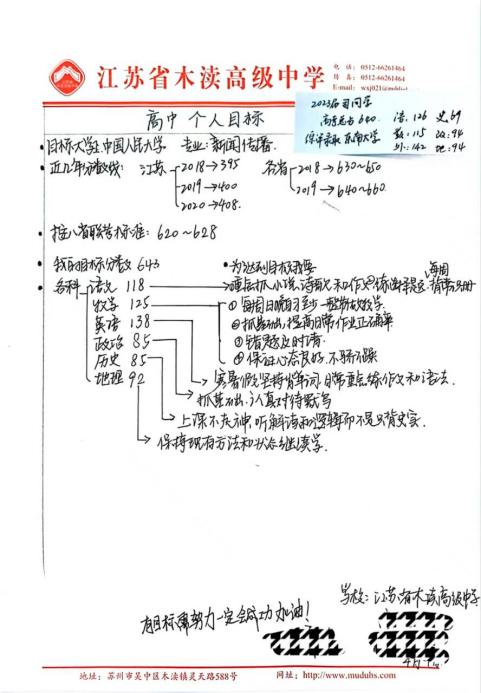 江苏省木渎高级中学
电 话: 0512-66261464
传 真: 0512-66261464
E-mail: wxj021@muduhs
2023届 同学
高考总分 640.
综评录取 东南大学
语:126 史69
数:115 政:94
外:142 地:94
高中 个人目标
目标大学:中国人民大学 专业:新闻传播.
近几年分数线: 江苏 2018→395 各省 2018→630~650
2019→400 2019→640~660
2020→408.
推八省联考标准: 620~628
我的目标分数 643
为达到目标我要
各科 语文 118
数学 125
英语 138
政治 85
历史 85
地理 92
重点抓小说、诗歌文和作文
①每周日晚自习至少一
②抓基础,提高日常作业正确率
③错题及时清.
④保证心态良好,不骄不躁
寒暑假坚持背单词,日常重点练作文和语法.
抓基础,认真对待默写
上课不走神,听解法和逻辑而不是只背史实.
保持现有方法和状态继续学.
学校:江苏省木渎高级中学
有目标 努力一定会成功 加油!
地址: 苏州市吴中区木渎镇灵天路588号 网址: http://www.muduhs.com